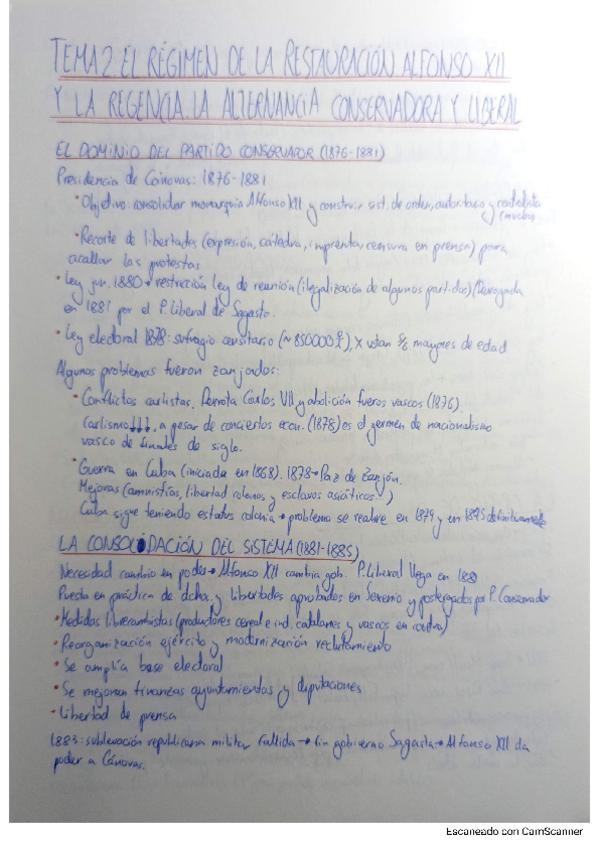 TEMA 2. EL RÉGIMEN DE LA RESTAURACIÓN ALFONSO XII
Y LA REGENCIA. LA ALTERNANCIA CONSERVADORA Y LIBERAL
EL DOMINIO DEL PARTIDO CONSERVADOR (1876-1881)
Presidencia de Cánovas: 1876-1881
• Objetivo: consolidar monarquía Alfonso XII y construir sist. de orden, autoritario y
• Recorte de libertades (expresión, cátedra, imprenta, censura en prensa) para
acallar las protestas
• Ley jun. 1880 → restricción ley de reunión (ilegalización de algunos partidos) (Derogada
en 1881 por el P. Liberal de Sagasta.
• Ley electoral 1878: sufragio censitario (~850000 ), x votan mayores de edad
Algunos problemas fueron zanjados:
• Conflictos carlistas. Derrota Carlos VII y abolición fueros vascos (1876).
Carlismo↓↓↓, a pesar de conciertos econ. (1878) es el germen de nacionalismo
vasco de finales de siglo.
• Guerra en Cuba (iniciada en 1868). 1878 → Paz de Zanjón.
Mejoras (amnistías, libertad colonos y esclavos asiáticos...)
Cuba sigue teniendo estatus colonia → problema se reabre en 1879 y en 1895 definitivamente
LA CONSOLIDACIÓN DEL SISTEMA (1881-1885)
Necesidad cambio en poder → Alfonso XII cambia gob. P. Liberal llega en 1881
Puesta en práctica de dchos. y libertades aprobados en Sexenio y postergados por P. Conservador
• Medidas librecambistas (productores cereal e ind. catalanes y vascos en contra)
• Reorganización ejército y modernización reclutamiento
• Se amplía base electoral
• Se mejoran finanzas ayuntamientos y diputaciones
• Libertad de prensa
1883: sublevación republicana militar fallida → fin gobierno Sagasta → Alfonso XII da
poder a Cánovas.
Escaneado con CamScanner